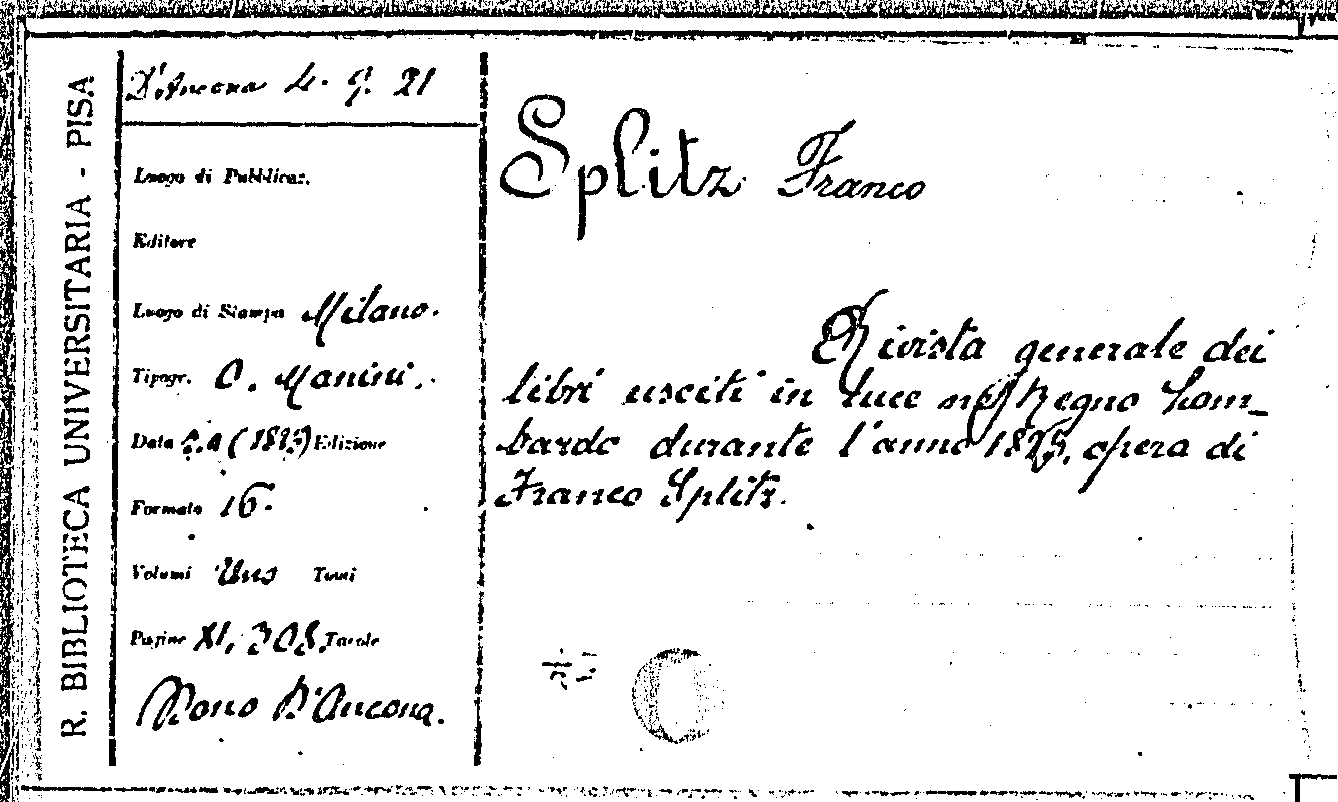 R. BIBLIOTECA UNIVERSITARIA - PISA
D'Ancona 4. 9. 21
Luogo di Pubblicaz.
Editore
Luogo di Stampa Milano.
Tipogr. O. Manini.
Data s.a (1825) Edizione
Formato 16.
Volumi Uno Tomi
Pagine XI, 308. Tavole
Dono D'Ancona.
Splitz Franco
Rivista generale dei
libri usciti in luce nel Regno Lom-
bardo durante l'anno 1825, opera di
Franco Splitz.